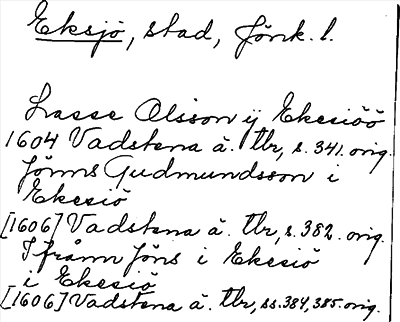 Eksjö, stad, Jönk. l.
Lasse Olsson ij Ekesiöö
1604 Vadstena ä. tbr, s. 341. orig.
Jönns Gudmundsson i
Ekesiö
[1606] Vadstena ä. tbr, s. 382. orig.
Ifrånn Jöns i Ekesiö
i Ekesiö
[1606] Vadstena ä. tbr, ss. 384, 385. orig.